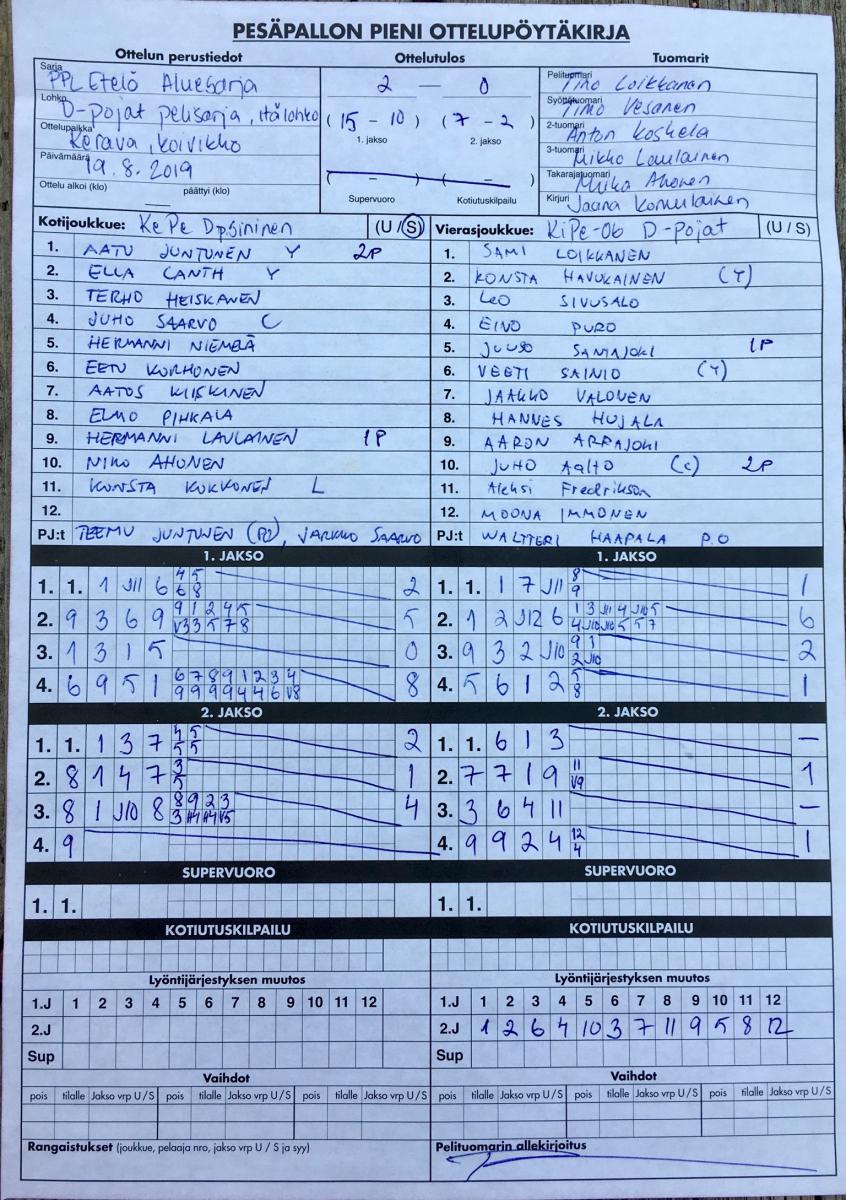 PESÄPALLON PIENI OTTELUPÖYTÄKIRJA
Ottelun perustiedot Ottelutulos Tuomarit
Sarja PPL Etelä Aluesarja
2 — 0
Pelituomari Timo Loikkanen
Lohko D-pojat pelisarja, itälohko
(15 - 10) (7 - 2)
1. jakso 2. jakso
Syöttötuomari Timo Vesanen
2-tuomari Anton Koskela
Ottelupaikka Kerava, Koivikko
3-tuomari Mikko Laulainen
Päivämäärä 19.8.2019
( – ) ( – )
Supervuoro Kotiutuskilpailu
Takarajatuomari Miika Ahonen
Ottelu alkoi (klo) päättyi (klo)
Kirjuri Jaana
Kotijoukkue: KePe Dp.Sininen (U / S) Vierasjoukkue: KiPe-06 D-pojat (U / S)
1. AATU JUNTUNEN Y 2P 1. SAMI LOIKKANEN
2. ELLA CANTH Y 2. KONSTA HAVUKAINEN (Y)
3. TERHO HEISKANEN 3. LEO SIVUSALO
4. JUHO SAARVO C 4. EINO PURO
5. HERMANNI NIEMELÄ 5. JUUSO SANTAJOKI 1P
6. EETU KORHONEN 6. VEETI SAINIO (Y)
7. AATOS KIISKINEN 7. JAAKKO VALONEN
8. ELMO PIHKALA 8. HANNES HUJALA
9. HERMANNI LAULAINEN 1P 9. AARON ARPAJOKI
10. NIKO AHONEN 10. JUHO Aalto (c) 2P
11. KONSTA KOKKONEN L 11. Aleksi Fredrikson
12. 12. MOONA IMMONEN
PJ:t TEEMU JUNTUNEN (PJ), JARKKO SAARVO PJ:t WALTTERI HAAPALA P.O
1. JAKSO 1. JAKSO
4 5 8
1. 1. 1 JII 6 6 8 2 1. 1. 1 7 JII 9 1
9 1 2 4 5 1 3 JII 4 J10 5
2. 9 3 6 9 V3 3 5 7 8 5 2. 1 2 J12 6 4 J10 J10 5 5 7 6
9 1
3. 1 3 1 5 0 3. 9 3 2 J10 2 J10 2
6 7 8 9 1 2 3 4 5
4. 6 9 5 1 9 9 9 9 4 4 6 V8 8 4. 5 6 1 2 8 1
2. JAKSO 2. JAKSO
4 5
1. 1. 1 3 7 5 5 2 1. 1. 6 1 3 –
3 11
2. 8 1 4 7 5 1 2. 7 7 1 9 V9 1
8 9 2 3
3. 8 1 J10 8 3 4 4 V5 4 3. 3 6 4 11 –
12
4. 9 4. 9 9 2 4 4 1
SUPERVUORO SUPERVUORO
1. 1. 1. 1.
KOTIUTUSKILPAILU KOTIUTUSKILPAILU
Lyöntijärjestyksen muutos Lyöntijärjestyksen muutos
1.J 1 2 3 4 5 6 7 8 9 10 11 12 1.J 1 2 3 4 5 6 7 8 9 10 11 12
2.J 2.J 1 2 6 4 10 3 7 11 9 5 8 12
Sup Sup
Vaihdot Vaihdot
pois tilalle Jakso vrp U / S pois tilalle Jakso vrp U / S pois tilalle Jakso vrp U / S pois tilalle Jakso vrp U / S pois tilalle Jakso vrp U / S pois tilalle Jakso vrp U / S
Rangaistukset (joukkue, pelaaja nro, jakso vrp U / S ja syy) Pelituomarin allekirjoitus